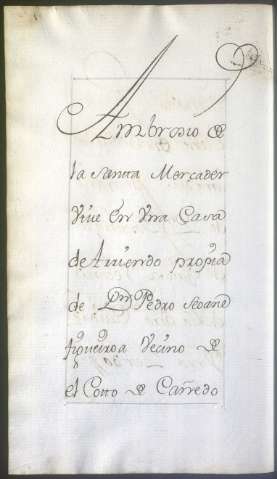 Ambrosio de
la Santa Mercader
Vive En Vna Casa
de Aruiendo propia
de Dn Pedro Seoane
figueiroa Vecino de
el Coto de Carredo